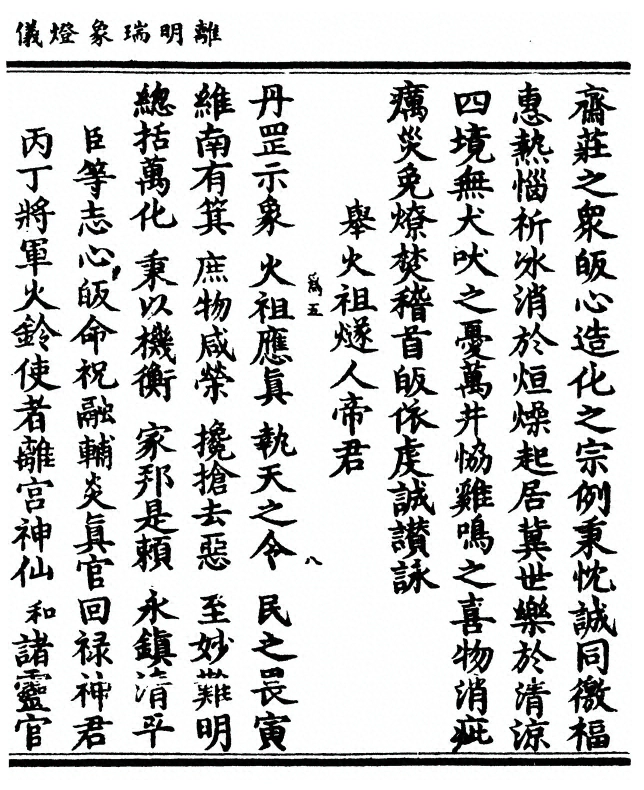 離明瑞象燈儀
齋莊之衆皈心造化之宗例秉忱誠同徼福
惠熱惱祈冰消於烜燥起居冀世樂於清涼
四境無犬吠之憂萬井恊雞鳴之喜物消疵
癘災免燎焚稽首皈依虔誠讃詠
舉火祖燧人帝君
爲五
八
丹罡示象 火祖應眞 執天之令 民之畏寅
維南有箕 庶物咸榮 攙搶去惡 至妙難明
總括萬化 秉以機衡 家邦是賴 永鎭清平
臣等志心皈命祝融輔炎眞官回禄神君
丙丁將軍火鈴使者離宫神仙和諸靈官